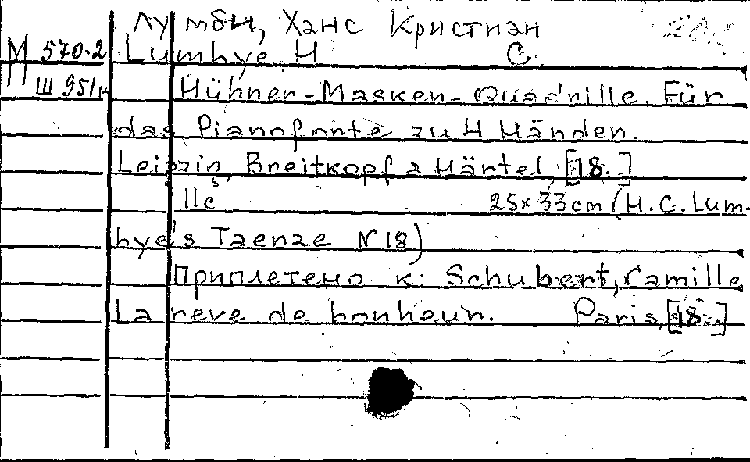 Лумбн, Ханс Кристиан
М 570-2 Lumbye H C.
Ш 951к Hühner-Masken-Quadrille. Für
das Pianoforte zu 4 Händen.
Leipzig, Breitkopf & Härtel, [18..]
11c 25x33cm (H.C. Lum-
bye's Taenze N 18)
Приплетено к: Schubert, Camille
La reve de bonheur. Paris, [18..]